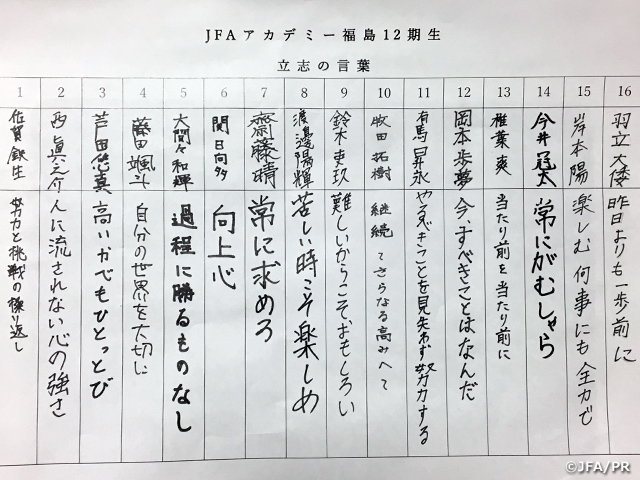 JFAアカデミー福島12期生
立志の言葉
1 2 3 4 5 6 7 8 9 10 11 12 13 14 15 16
佐賀 鉄生
努力と挑戦の繰り返し
西 眞之介
人に流されない心の強さ
芦田 悠真
高いかべもひとっとび
藤田 颯斗
自分の世界を大切に
大間々 和輝
過程に勝るものなし
関 日向多
向上心
齋藤 晴
常に求めろ
渡邊 陽輝
苦しい時こそ楽しめ
鈴木 吏玖
難しいからこそ、おもしろい
牧田 拓樹
継続してさらなる高みへて
有馬 昇永
やるべきことを見失わず努力する
岡本 歩夢
今、すべきことはなんだ
稚葉 爽
当たり前を当たり前に
今井 冠太
常にがむしゃら
岸本 陽
楽しむ 何事にも全力で
羽立 大倭
昨日よりも一歩前に
©JFA/PR